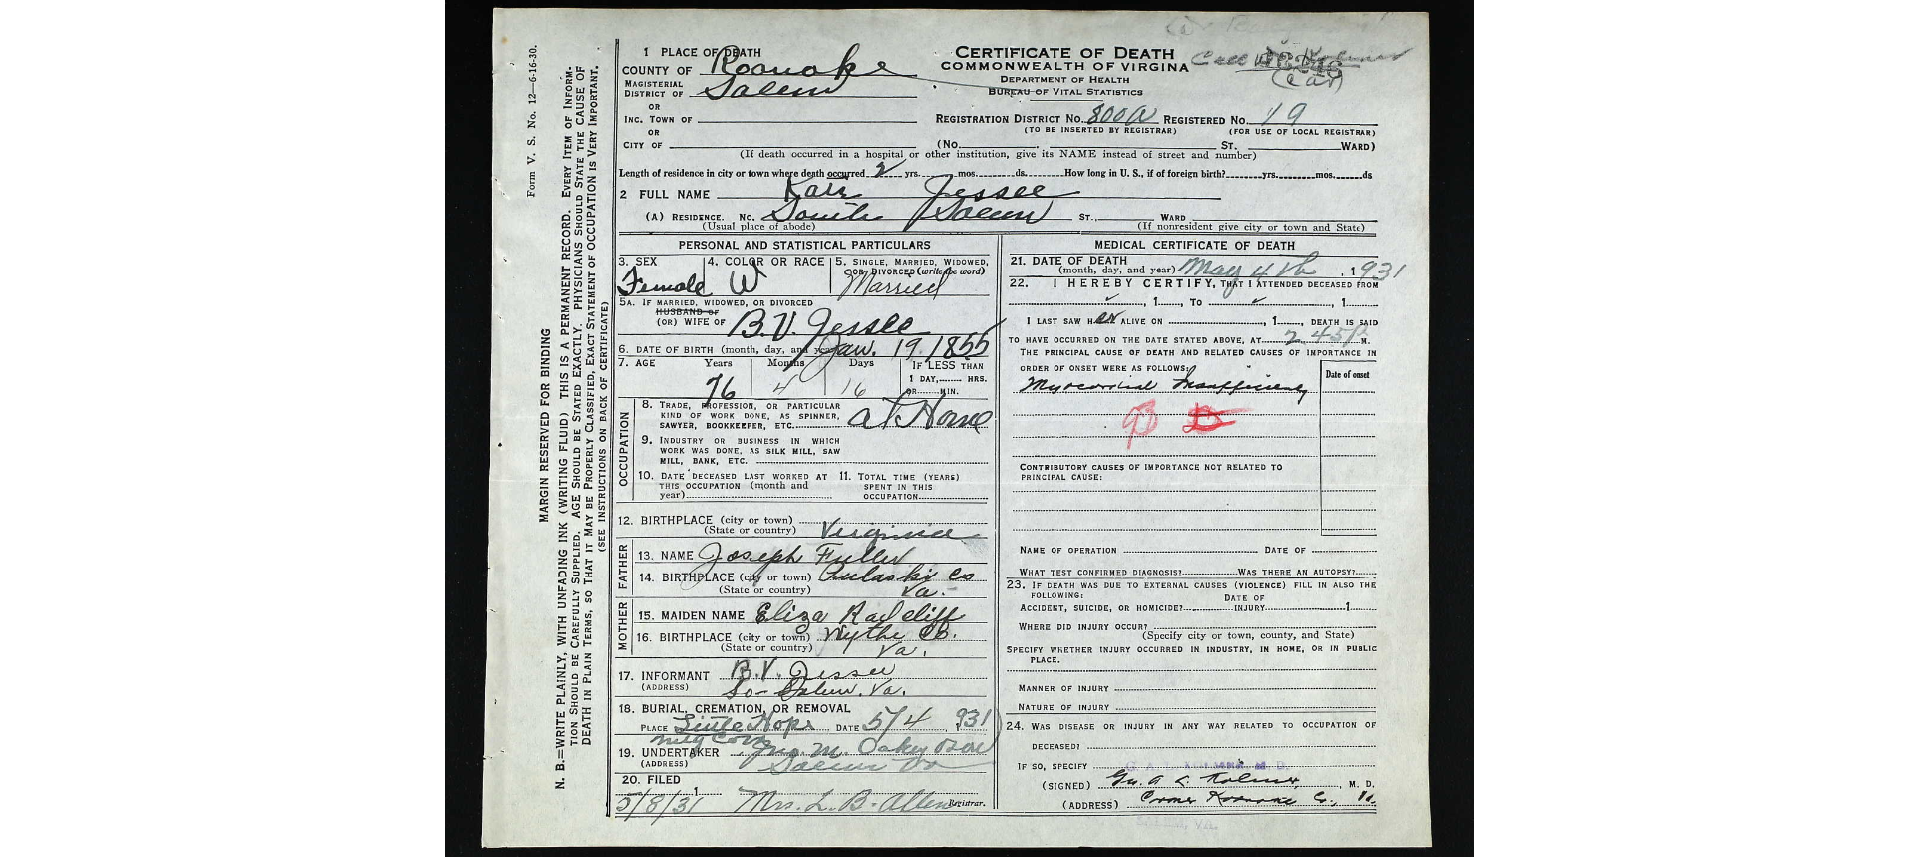 Form V. S. No. 12—6-16-30.
MARGIN RESERVED FOR BINDING
N. B.—WRITE PLAINLY, WITH UNFADING INK (WRITING FLUID) THIS IS A PERMANENT RECORD. EVERY ITEM OF INFORM-
TION SHOULD BE CAREFULLY SUPPLIED. AGE SHOULD BE STATED EXACTLY. PHYSICIANS SHOULD STATE THE CAUSE OF
DEATH IN PLAIN TERMS, SO THAT IT MAY BE PROPERLY CLASSIFIED. EXACT STATEMENT OF OCCUPATION IS VERY IMPORTANT.
(SEE INSTRUCTIONS ON BACK OF CERTIFICATE)
1 PLACE OF DEATH
COUNTY OF Roanoke
MAGISTERIAL
DISTRICT OF Salem
OR
INC. TOWN OF
OR
CITY OF
CERTIFICATE OF DEATH
COMMONWEALTH OF VIRGINA
DEPARTMENT OF HEALTH
BUREAU OF VITAL STATISTICS
REGISTRATION DISTRICT NO. 800A REGISTERED NO. 19
(TO BE INSERTED BY REGISTRAR) (FOR USE OF LOCAL REGISTRAR)
(No. ST. WARD)
(If death occurred in a hospital or other institution, give its NAME instead of street and number)
Length of residence in city or town where death occurred 2 yrs. mos. ds. How long in U. S., if of foreign birth? yrs. mos. ds
2 FULL NAME Jessee
(A) RESIDENCE. No. South Salem ST., WARD
(Usual place of abode) (If nonresident give city or town and State)
PERSONAL AND STATISTICAL PARTICULARS
3. SEX 4. COLOR OR RACE 5. SINGLE, MARRIED, WIDOWED,
OR DIVORCED (write the word)
Female W Married
5A. IF MARRIED, WIDOWED, OR DIVORCED
HUSBAND OF
(OR) WIFE OF B.V. Jessee
6. DATE OF BIRTH (month, day, and year) Jan. 19, 1855
7. AGE Years Months Days IF LESS THAN
1 DAY, HRS.
76 4 16 OR MIN.
OCCUPATION
8. TRADE, PROFESSION, OR PARTICULAR
KIND OF WORK DONE, AS SPINNER,
SAWYER, BOOKKEEPER, ETC. at Home
9. INDUSTRY OR BUSINESS IN WHICH
WORK WAS DONE, AS SILK MILL, SAW
MILL, BANK, ETC.
10. DATE DECEASED LAST WORKED AT
THIS OCCUPATION (month and
year)
11. TOTAL TIME (YEARS)
SPENT IN THIS
OCCUPATION
12. BIRTHPLACE (city or town)
(State or country) Virginia
FATHER
13. NAME Joseph Fuller
14. BIRTHPLACE (city or town) Pulaski Co
(State or country) Va.
MOTHER
15. MAIDEN NAME Eliza Radcliff
16. BIRTHPLACE (city or town) Wythe Co.
(State or country) Va.
17. INFORMANT B.V. Jessee
(ADDRESS) So-Salem, Va.
18. BURIAL, CREMATION, OR REMOVAL
PLACE Little Hope DATE 5/4, 1931
19. UNDERTAKER Jno. M. Oakey
(ADDRESS) Salem Va
20. FILED
5/8/31 Mrs. L. B. Allen Registrar.
MEDICAL CERTIFICATE OF DEATH
21. DATE OF DEATH
(month, day, and year) May 4th, 1931
22. I HEREBY CERTIFY, THAT I ATTENDED DECEASED FROM
, 1 , TO , 1
I LAST SAW HER ALIVE ON , 1 , DEATH IS SAID
TO HAVE OCCURRED ON THE DATE STATED ABOVE, AT 2 45 M.
THE PRINCIPAL CAUSE OF DEATH AND RELATED CAUSES OF IMPORTANCE IN
ORDER OF ONSET WERE AS FOLLOWS: Date of onset
Myocardial Insufficiency
CONTRIBUTORY CAUSES OF IMPORTANCE NOT RELATED TO
PRINCIPAL CAUSE:
NAME OF OPERATION DATE OF
WHAT TEST CONFIRMED DIAGNOSIS? WAS THERE AN AUTOPSY?
23. IF DEATH WAS DUE TO EXTERNAL CAUSES (VIOLENCE) FILL IN ALSO THE
FOLLOWING: DATE OF
ACCIDENT, SUICIDE, OR HOMICIDE? INJURY 1
WHERE DID INJURY OCCUR?
(Specify city or town, county, and State)
SPECIFY WHETHER INJURY OCCURRED IN INDUSTRY, IN HOME, OR IN PUBLIC
PLACE.
MANNER OF INJURY
NATURE OF INJURY
24. WAS DISEASE OR INJURY IN ANY WAY RELATED TO OCCUPATION OF
DECEASED?
IF SO, SPECIFY
(SIGNED) Geo. A. L. Kolmer, M. D.
(ADDRESS) Coroner Roanoke Co., Va.
SALEM, VA.